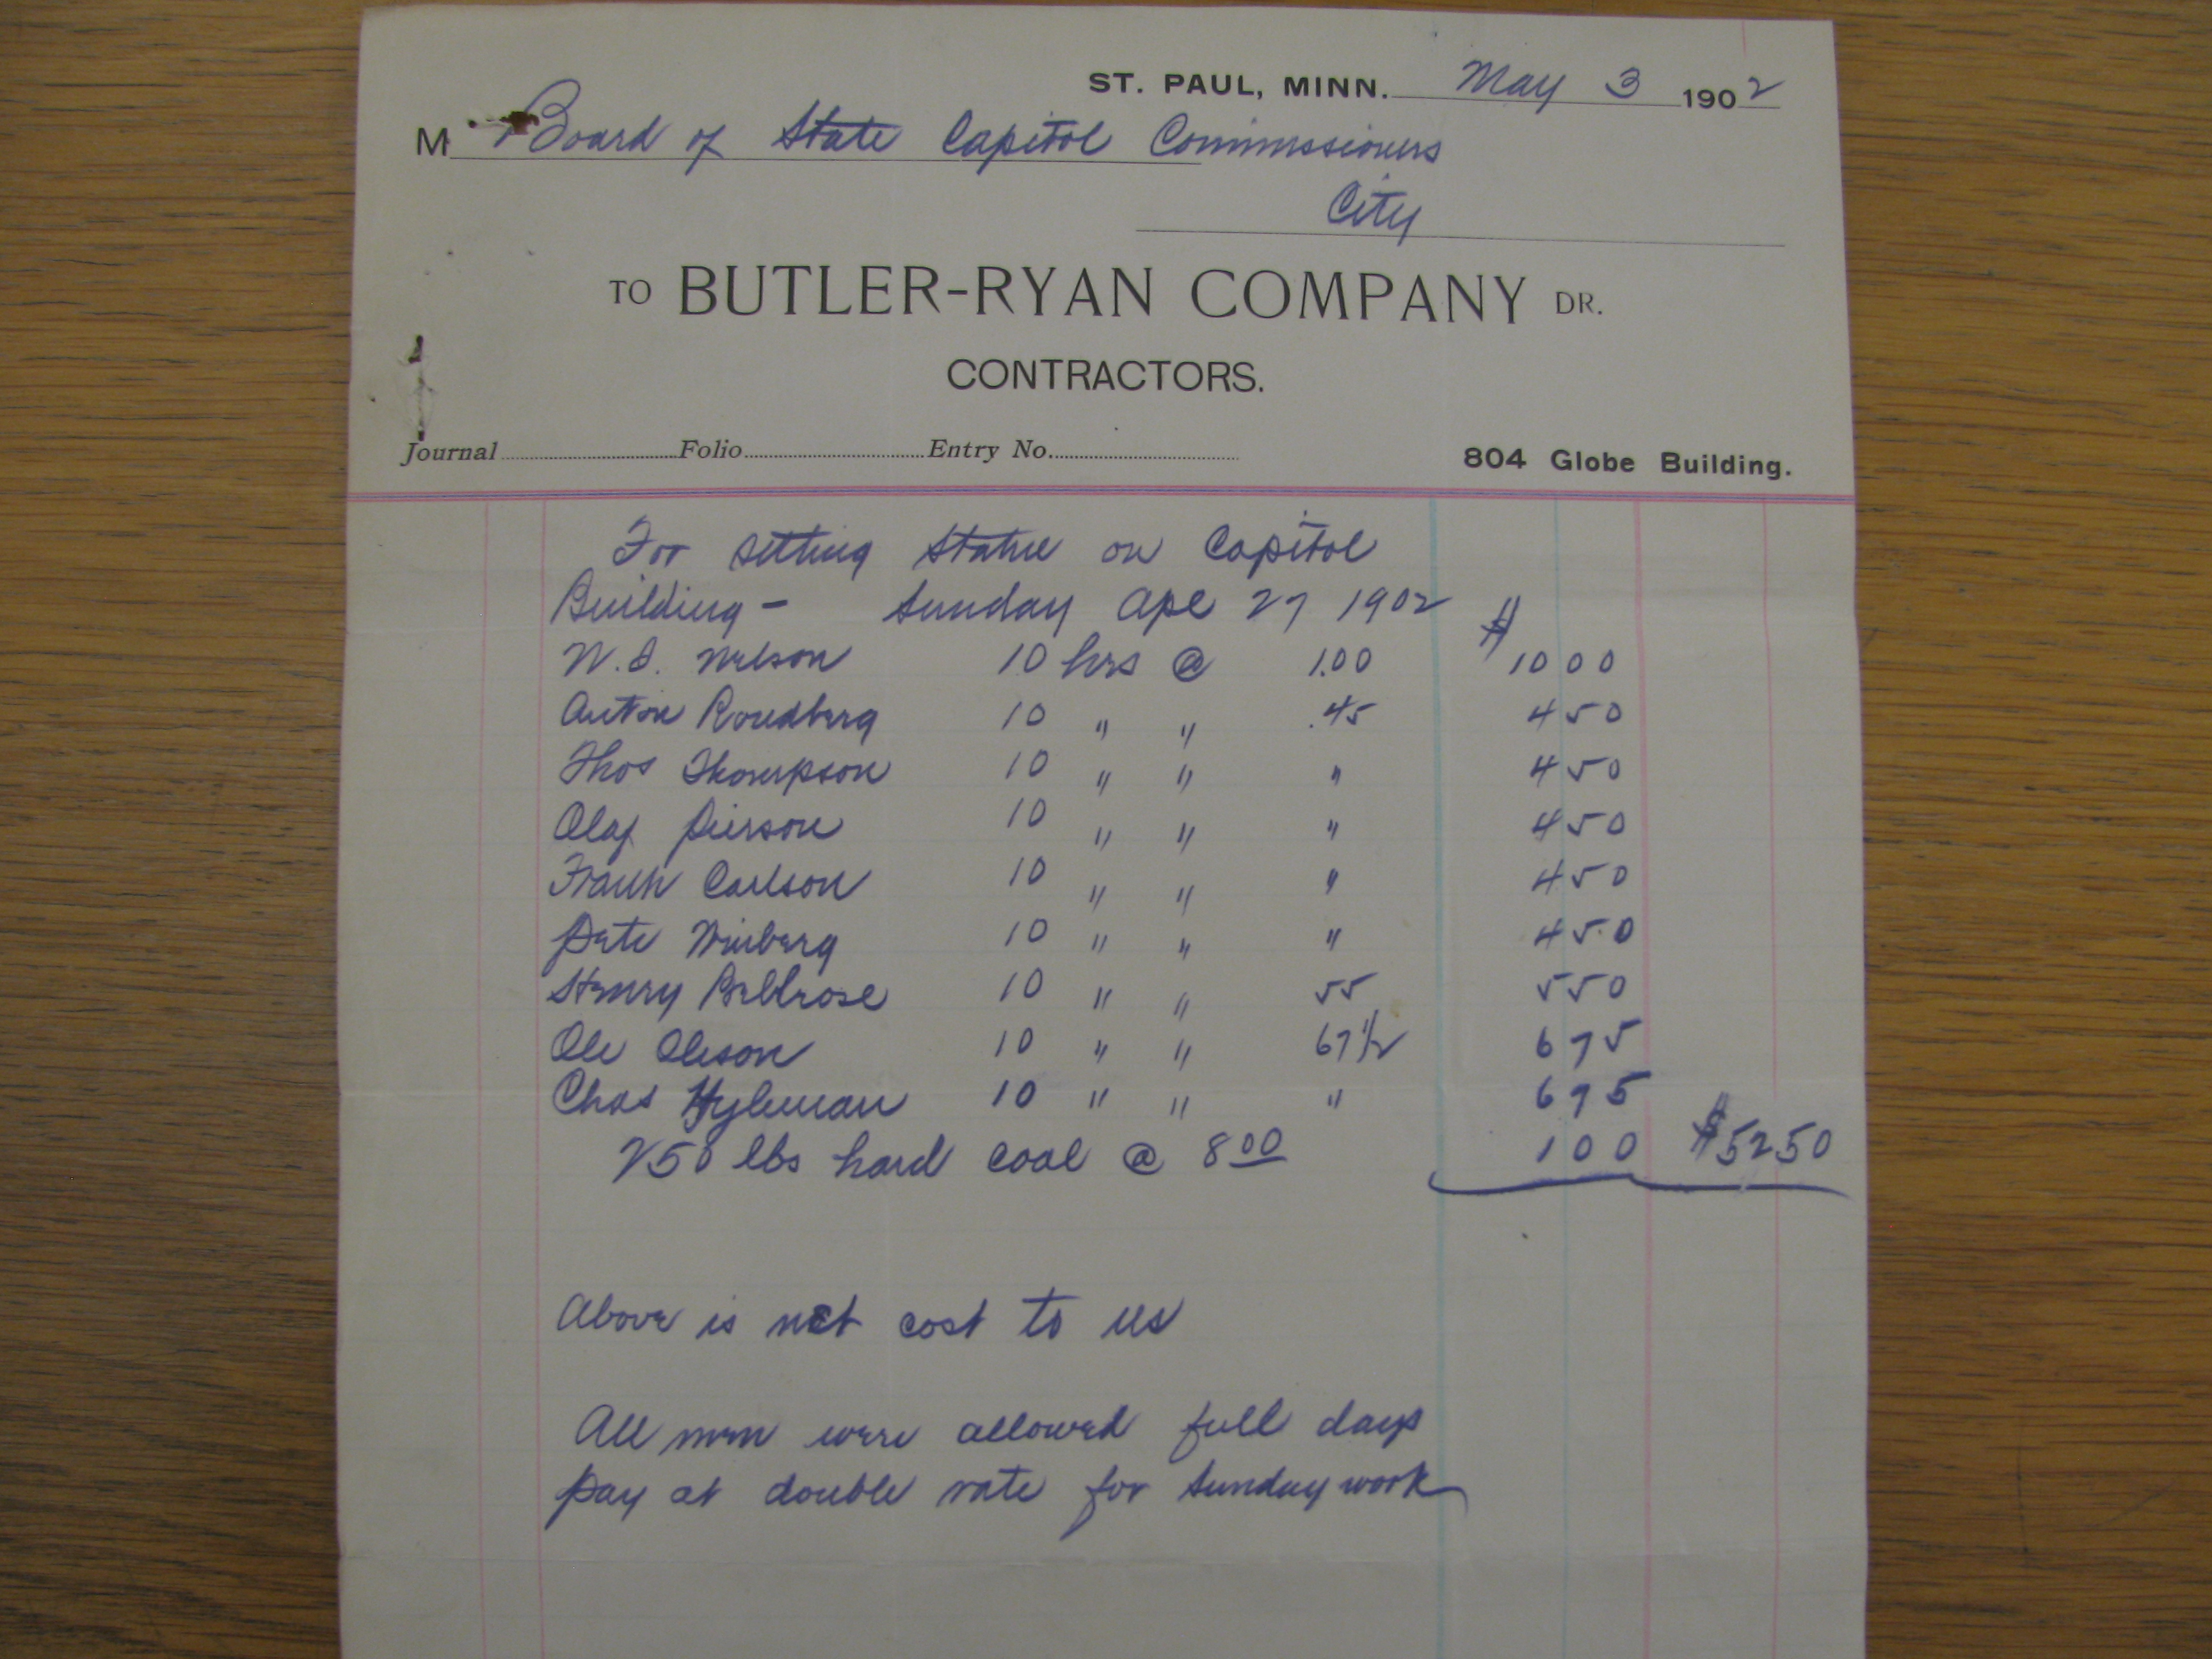 ST. PAUL, MINN. May 3 1902
M Board of State Capitol Commissioners
City
TO BUTLER-RYAN COMPANY DR.
CONTRACTORS.
Journal Folio Entry No. 804 Globe Building.
For setting Statue on Capitol
Building - Sunday Apl 27 1902
N. S. Nelson 10 hrs @ 1.00 $ 10 00
Anton Roudberg 10 " " .45 4 50
Thos Thompson 10 " " " 4 50
Olaf Pierson 10 " " " 4 50
Frank Carlson 10 " " " 4 50
Pete Winberg 10 " " " 4 50
Henry Bellrose 10 " " 55 5 50
Ole Oleson 10 " " 67 1/2 6 75
Chas Hyleman 10 " " " 6 75
250 lbs hard coal @ 8 00 1 00 $52 50
Above is net cost to us
All men were allowed full days
pay at double rate for Sunday work